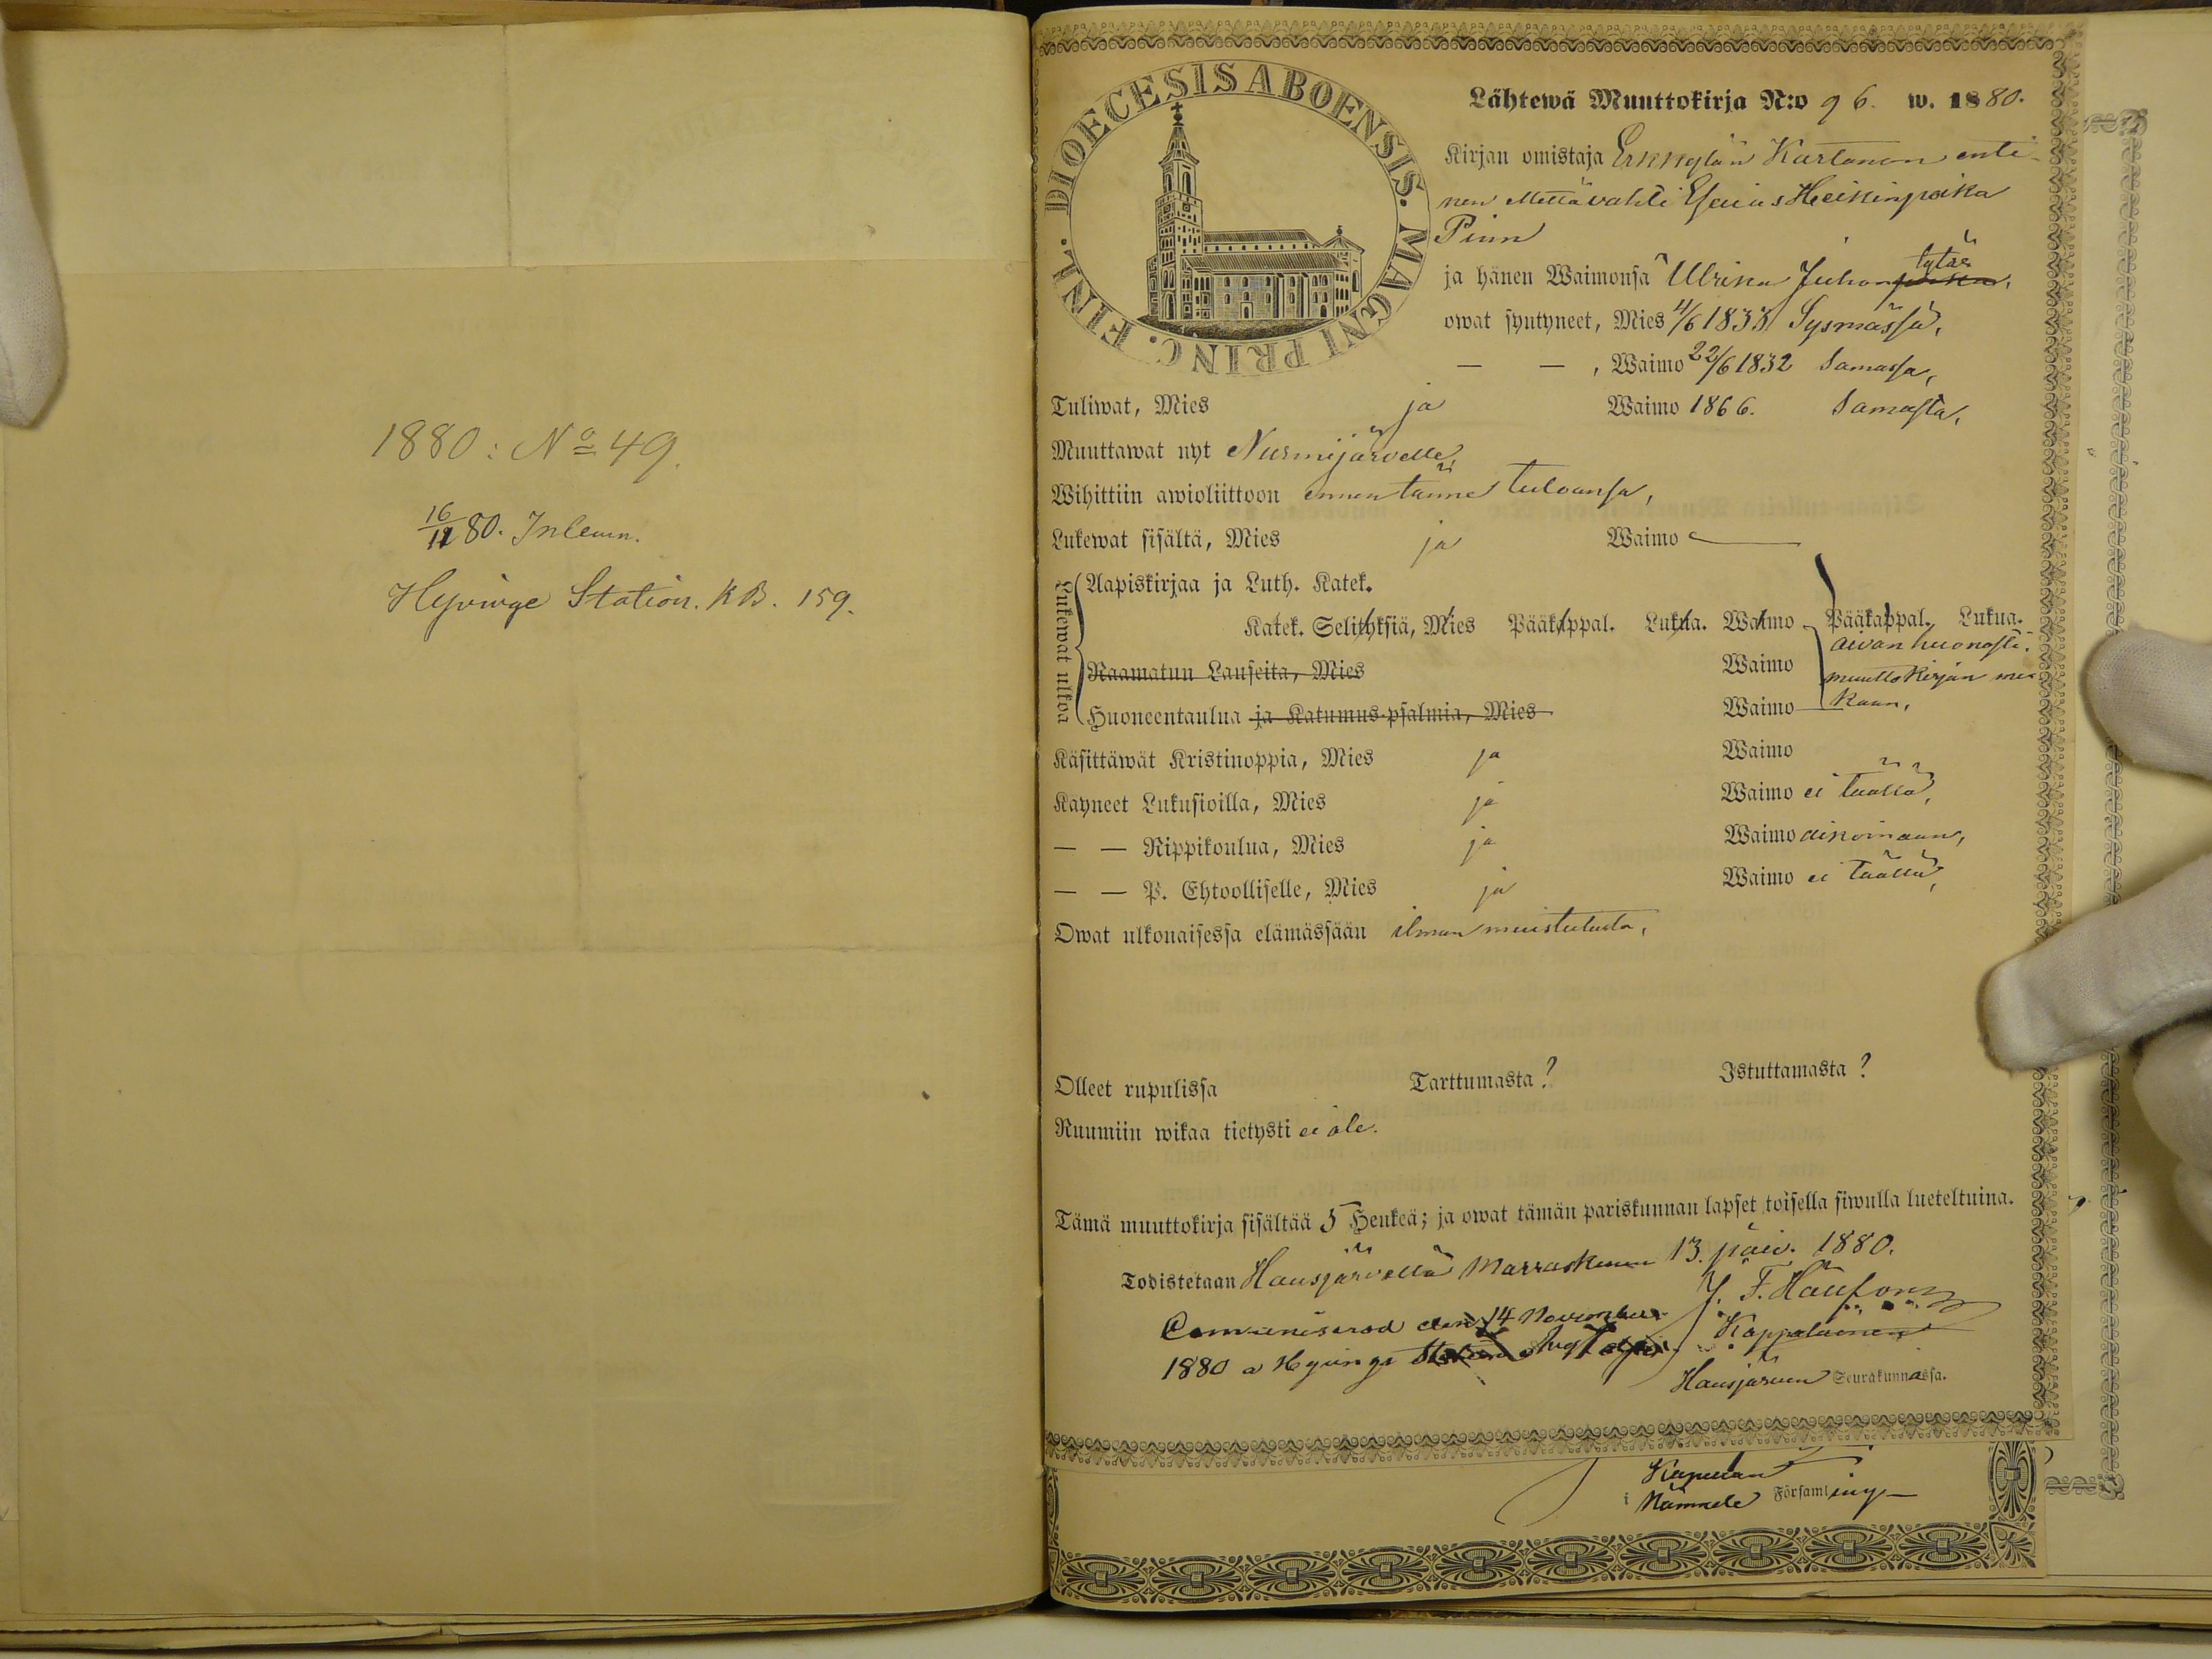 1880: No 49.
16/11 80. Inlemn.
Hyvinge Station. KB. 159.
DIOECESIS ABOENSIS. MAGNI PRINC. FINL.
Lähtewä Muuttokirja N:o 96. w. 1880.
Kirjan omistaja Erkkylän Kartanon enti-
nen Mettävahti Esaias Heikinpoika
Piun
tytär
ja hänen Waimonsa Ulrika Juhonpoika,
owat syntyneet, Mies 11/6 1833 Sysmässä,
— — , Waimo 22/6 1832 Samassa,
Tuliwat, Mies ja Waimo 1866. Samasta,
Muuttawat nyt Nurmijärvelle,
Wihittiin awioliittoon ennen tänne tuloansa,
Lukewat sisältä, Mies ja Waimo —
Lukewat ulkoa
Aapiskirjaa ja Luth. Katek.
Katek. Selityksiä, Mies Pääkappal. Lukua. Waimo Pääkappal. Lukua.
aivan huonosti.
Raamatun Lauseita, Mies Waimo muuttokirjan mu-
Huoneentaulua ja Katumus-psalmia, Mies Waimo kaan,
Käsittäwät Kristinoppia, Mies ja Waimo
Käyneet Lukusioilla, Mies ja Waimo ei täällä,
— — Rippikoulua, Mies ja Waimo aikoinaan,
— — P. Ehtoolliselle, Mies ja Waimo ei täällä,
Owat ulkonaisessa elämässään ilman muistutusta,
Olleet rupulissa Tarttumasta? Istuttamasta?
Ruumiin wikaa tietysti ei ole.
Tämä muuttokirja sisältää 5 Henkeä; ja owat tämän pariskunnan lapset toisella siwulla lueteltuina.
Todistetaan Hausjärvellä Marraskuun 13. päiv. 1880.
Communiserad den 14 November
1880 a Hyvinge
Kappalainen
Hausjärven Seurakunnassa.
Kapellan
i Församling